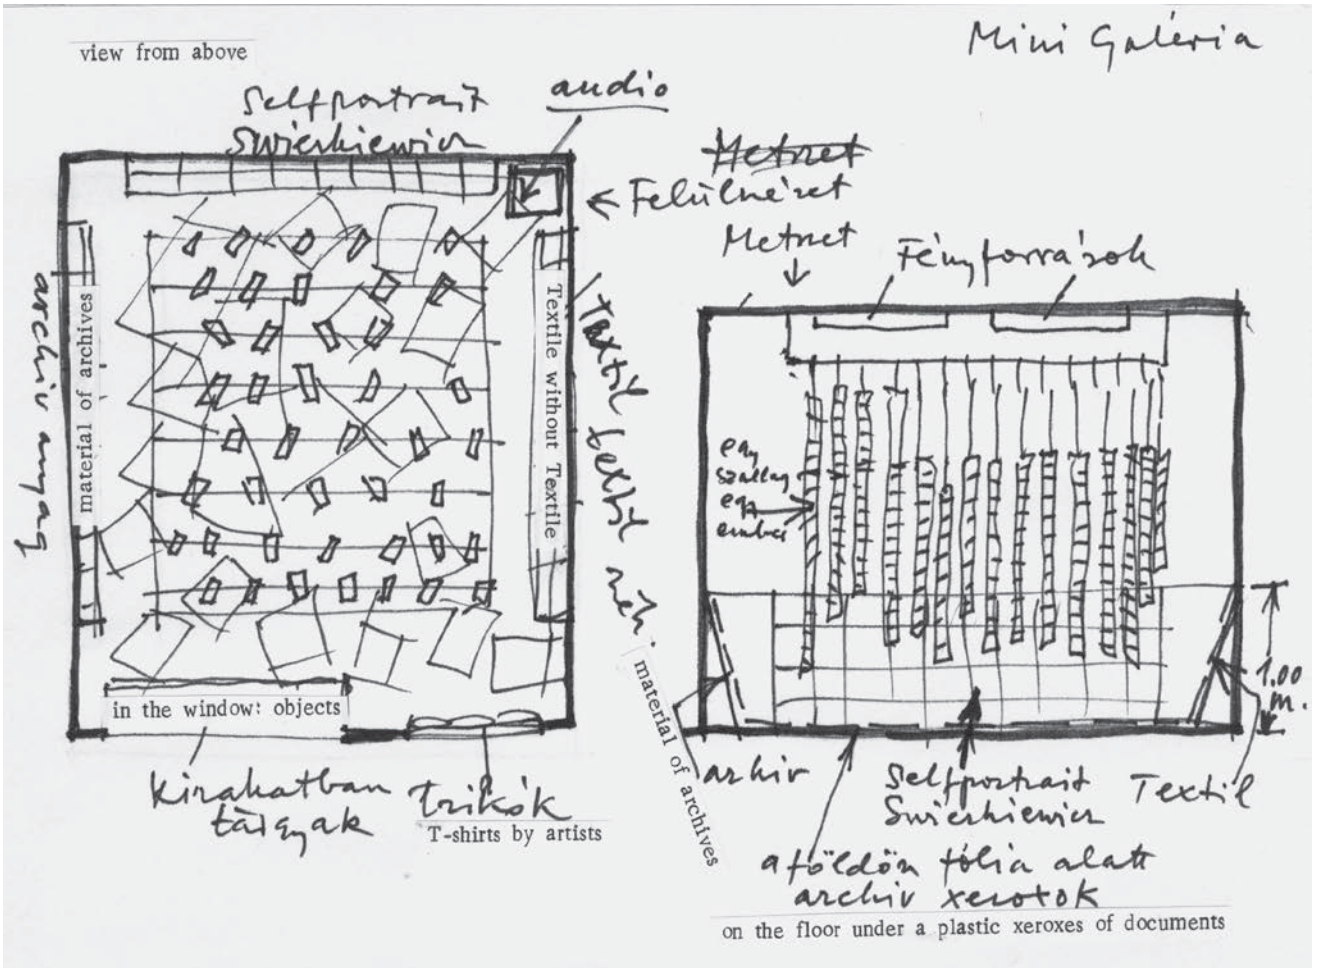 view from above
Mini Galéria
Selfportrait
Swierkiewicz
audio
Metszet
← Felülnézet
Metszet
Fényforrások
archiv anyag
material of archives
Textile without Textile
Textil textil nélk.
egy
szallag
egy
ember
1.00
m.
in the window: objects
kirakatban
tárgyak
trikók
T-shirts by artists
material of archives
arhiv
Selfportrait
Swierkiewicz
Textil
a földön fólia alatt
archiv xerotok
on the floor under a plastic xeroxes of documents